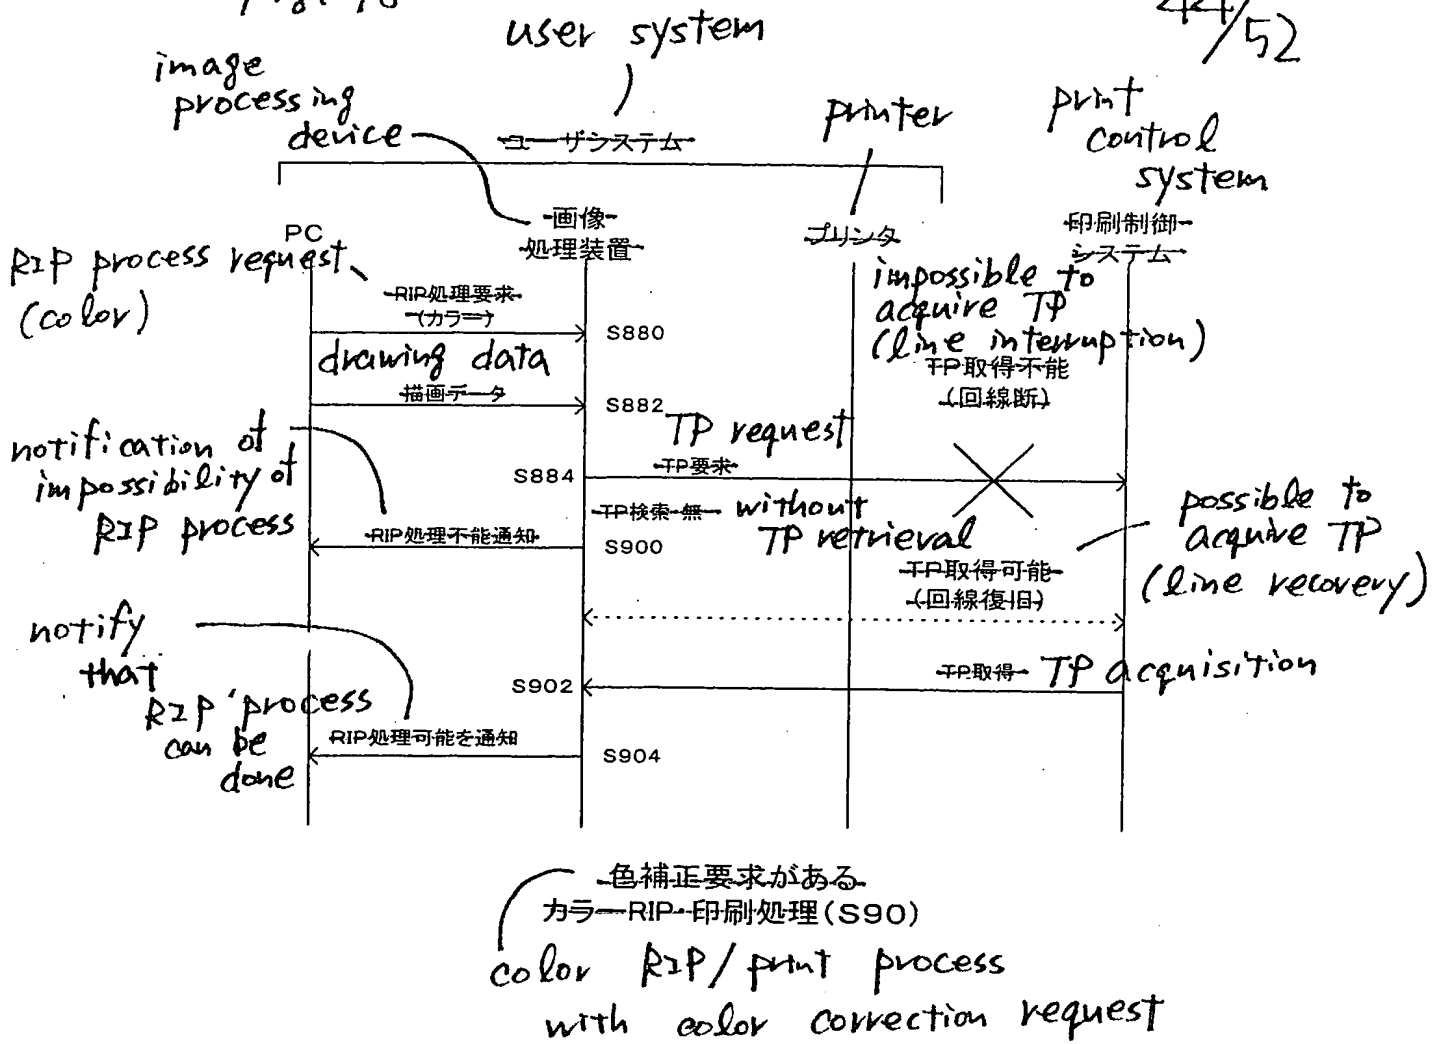 44/52
user system
image
processing
device
ユーザシステム
printer
print
control
system
PC
画像
処理装置
プリンタ
印刷制御
システム
RIP process request
(color)
RIP処理要求
(カラー)
S880
impossible to
acquire TP
(line interruption)
TP取得不能
(回線断)
drawing data
描画データ
S882
TP request
notification of
impossibility of
RIP process
S884
TP要求
TP検索 無
without
TP retrieval
RIP処理不能通知
S900
possible to
acquire TP
(line recovery)
TP取得可能
(回線復旧)
notify
that
RIP process
can be
done
S902
TP取得
TP acquisition
RIP処理可能を通知
S904
色補正要求がある
カラーRIP・印刷処理(S90)
color RIP/print process
with color correction request